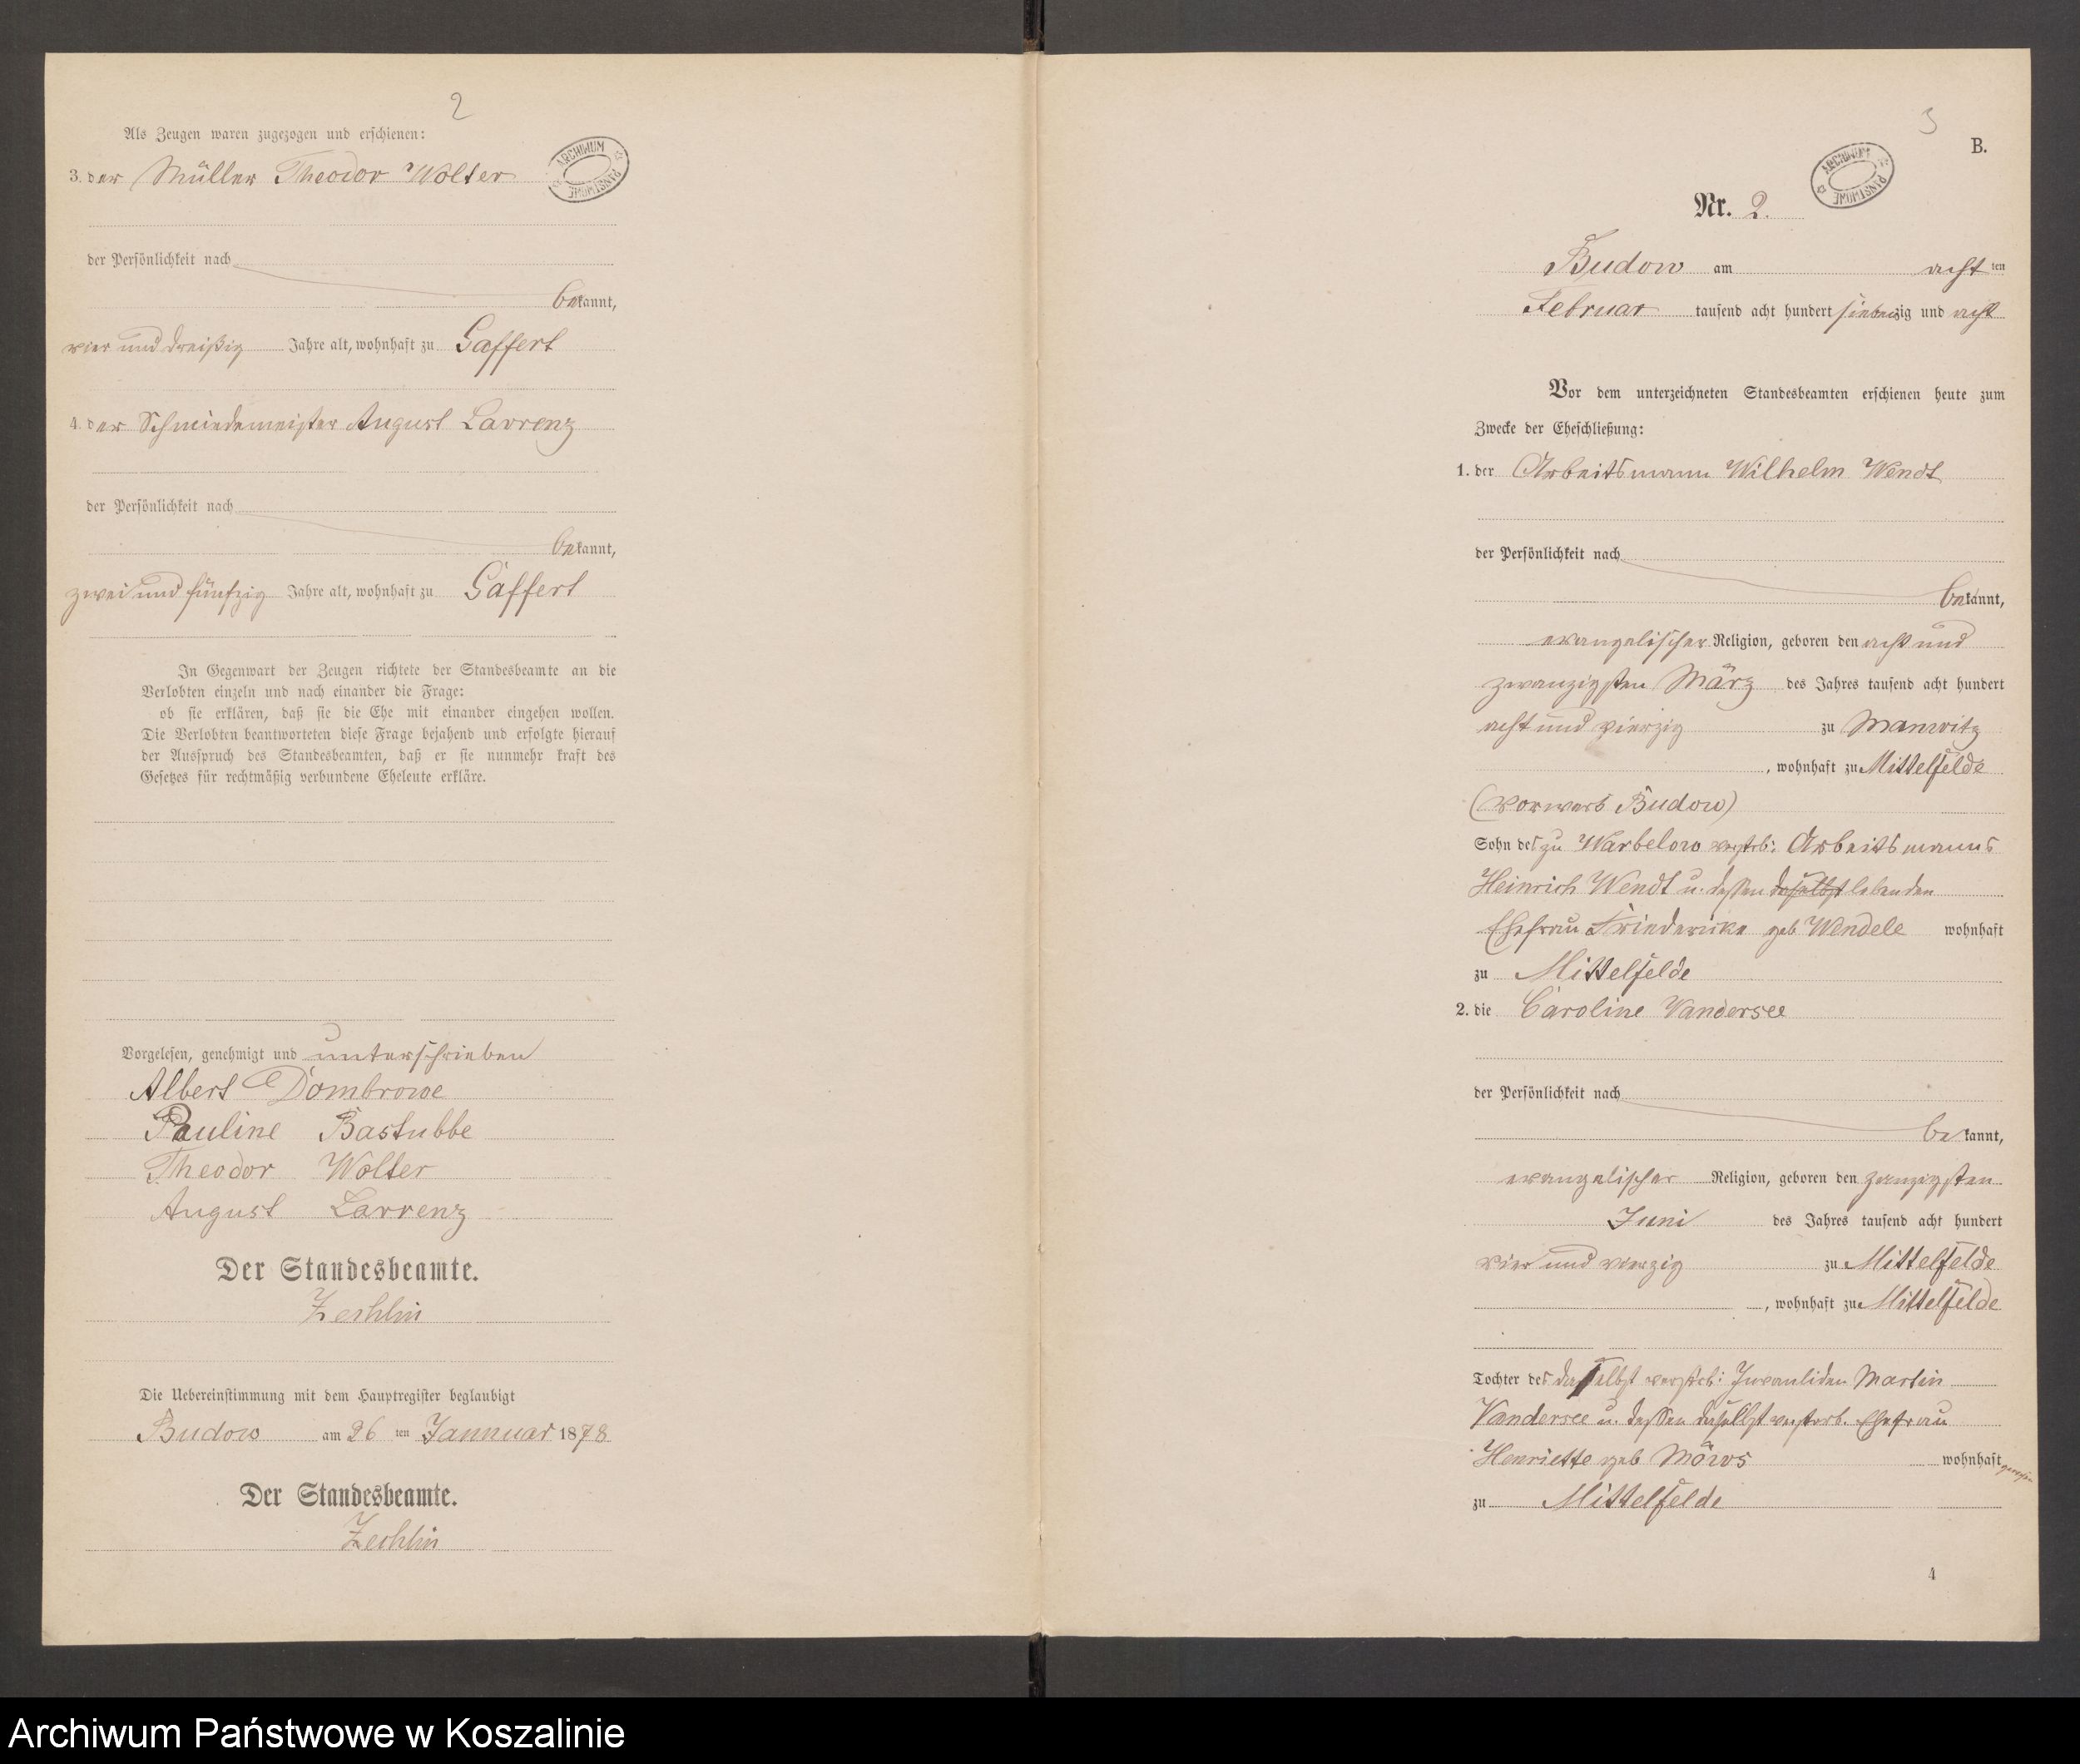 2
Als Zeugen waren zugezogen und erschienen:
ARCHIWUM PAŃSTWOWE
3. der Müller Theodor Wolter
der Persönlichkeit nach
bekannt,
vier und dreißig Jahre alt, wohnhaft zu Gaffert
4. der Schmiedemeister August Lavrenz
der Persönlichkeit nach
bekannt,
zwei und fünfzig Jahre alt, wohnhaft zu Gaffert
In Gegenwart der Zeugen richtete der Standesbeamte an die
Verlobten einzeln und nach einander die Frage:
ob sie erklären, daß sie die Ehe mit einander eingehen wollen.
Die Verlobten beantworteten diese Frage bejahend und erfolgte hierauf
der Ausspruch des Standesbeamten, daß er sie nunmehr kraft des
Gesetzes für rechtmäßig verbundene Eheleute erkläre.
Vorgelesen, genehmigt und unterschrieben
Albert Dombrowe
Pauline Bastubbe
Theodor Wolter
August Lavrenz
Der Standesbeamte.
Zechlin
Die Uebereinstimmung mit dem Hauptregister beglaubigt
Budow am 26 ten Januuar 1878
Der Standesbeamte.
Zechlin
3
B.
ARCHIWUM PAŃSTWOWE
Nr. 2.
Budow am acht ten
Februar tausend acht hundert siebenzig und acht
Vor dem unterzeichneten Standesbeamten erschienen heute zum
Zwecke der Eheschließung:
1. der Arbeitsmann Wilhelm Wendt
der Persönlichkeit nach
bekannt,
evangelischer Religion, geboren den acht und
zwanzigsten März des Jahres tausend acht hundert
acht und vierzig zu Manwitz
, wohnhaft zu Mittelfelde
(Vorwerk Budow)
Sohn des zu Warbelow verstrb: Arbeitsmanns
Heinrich Wendt u. dessen daselbst lebenden
Ehefrau Friedericke geb Wendele wohnhaft
zu Mittelfelde
2. die Caroline Vandersee
der Persönlichkeit nach
bekannt,
evangelischer Religion, geboren den zwanzigsten
Juni des Jahres tausend acht hundert
vier und vierzig zu Mittelfelde
, wohnhaft zu Mittelfelde
Tochter des daselbst verstrb: Invaliden Martin
Vandersee u. dessen daselbst verstorb. Ehefrau
Henriette geb Möws wohnhaft gewesen
zu Mittelfelde
4
Archiwum Państwowe w Koszalinie